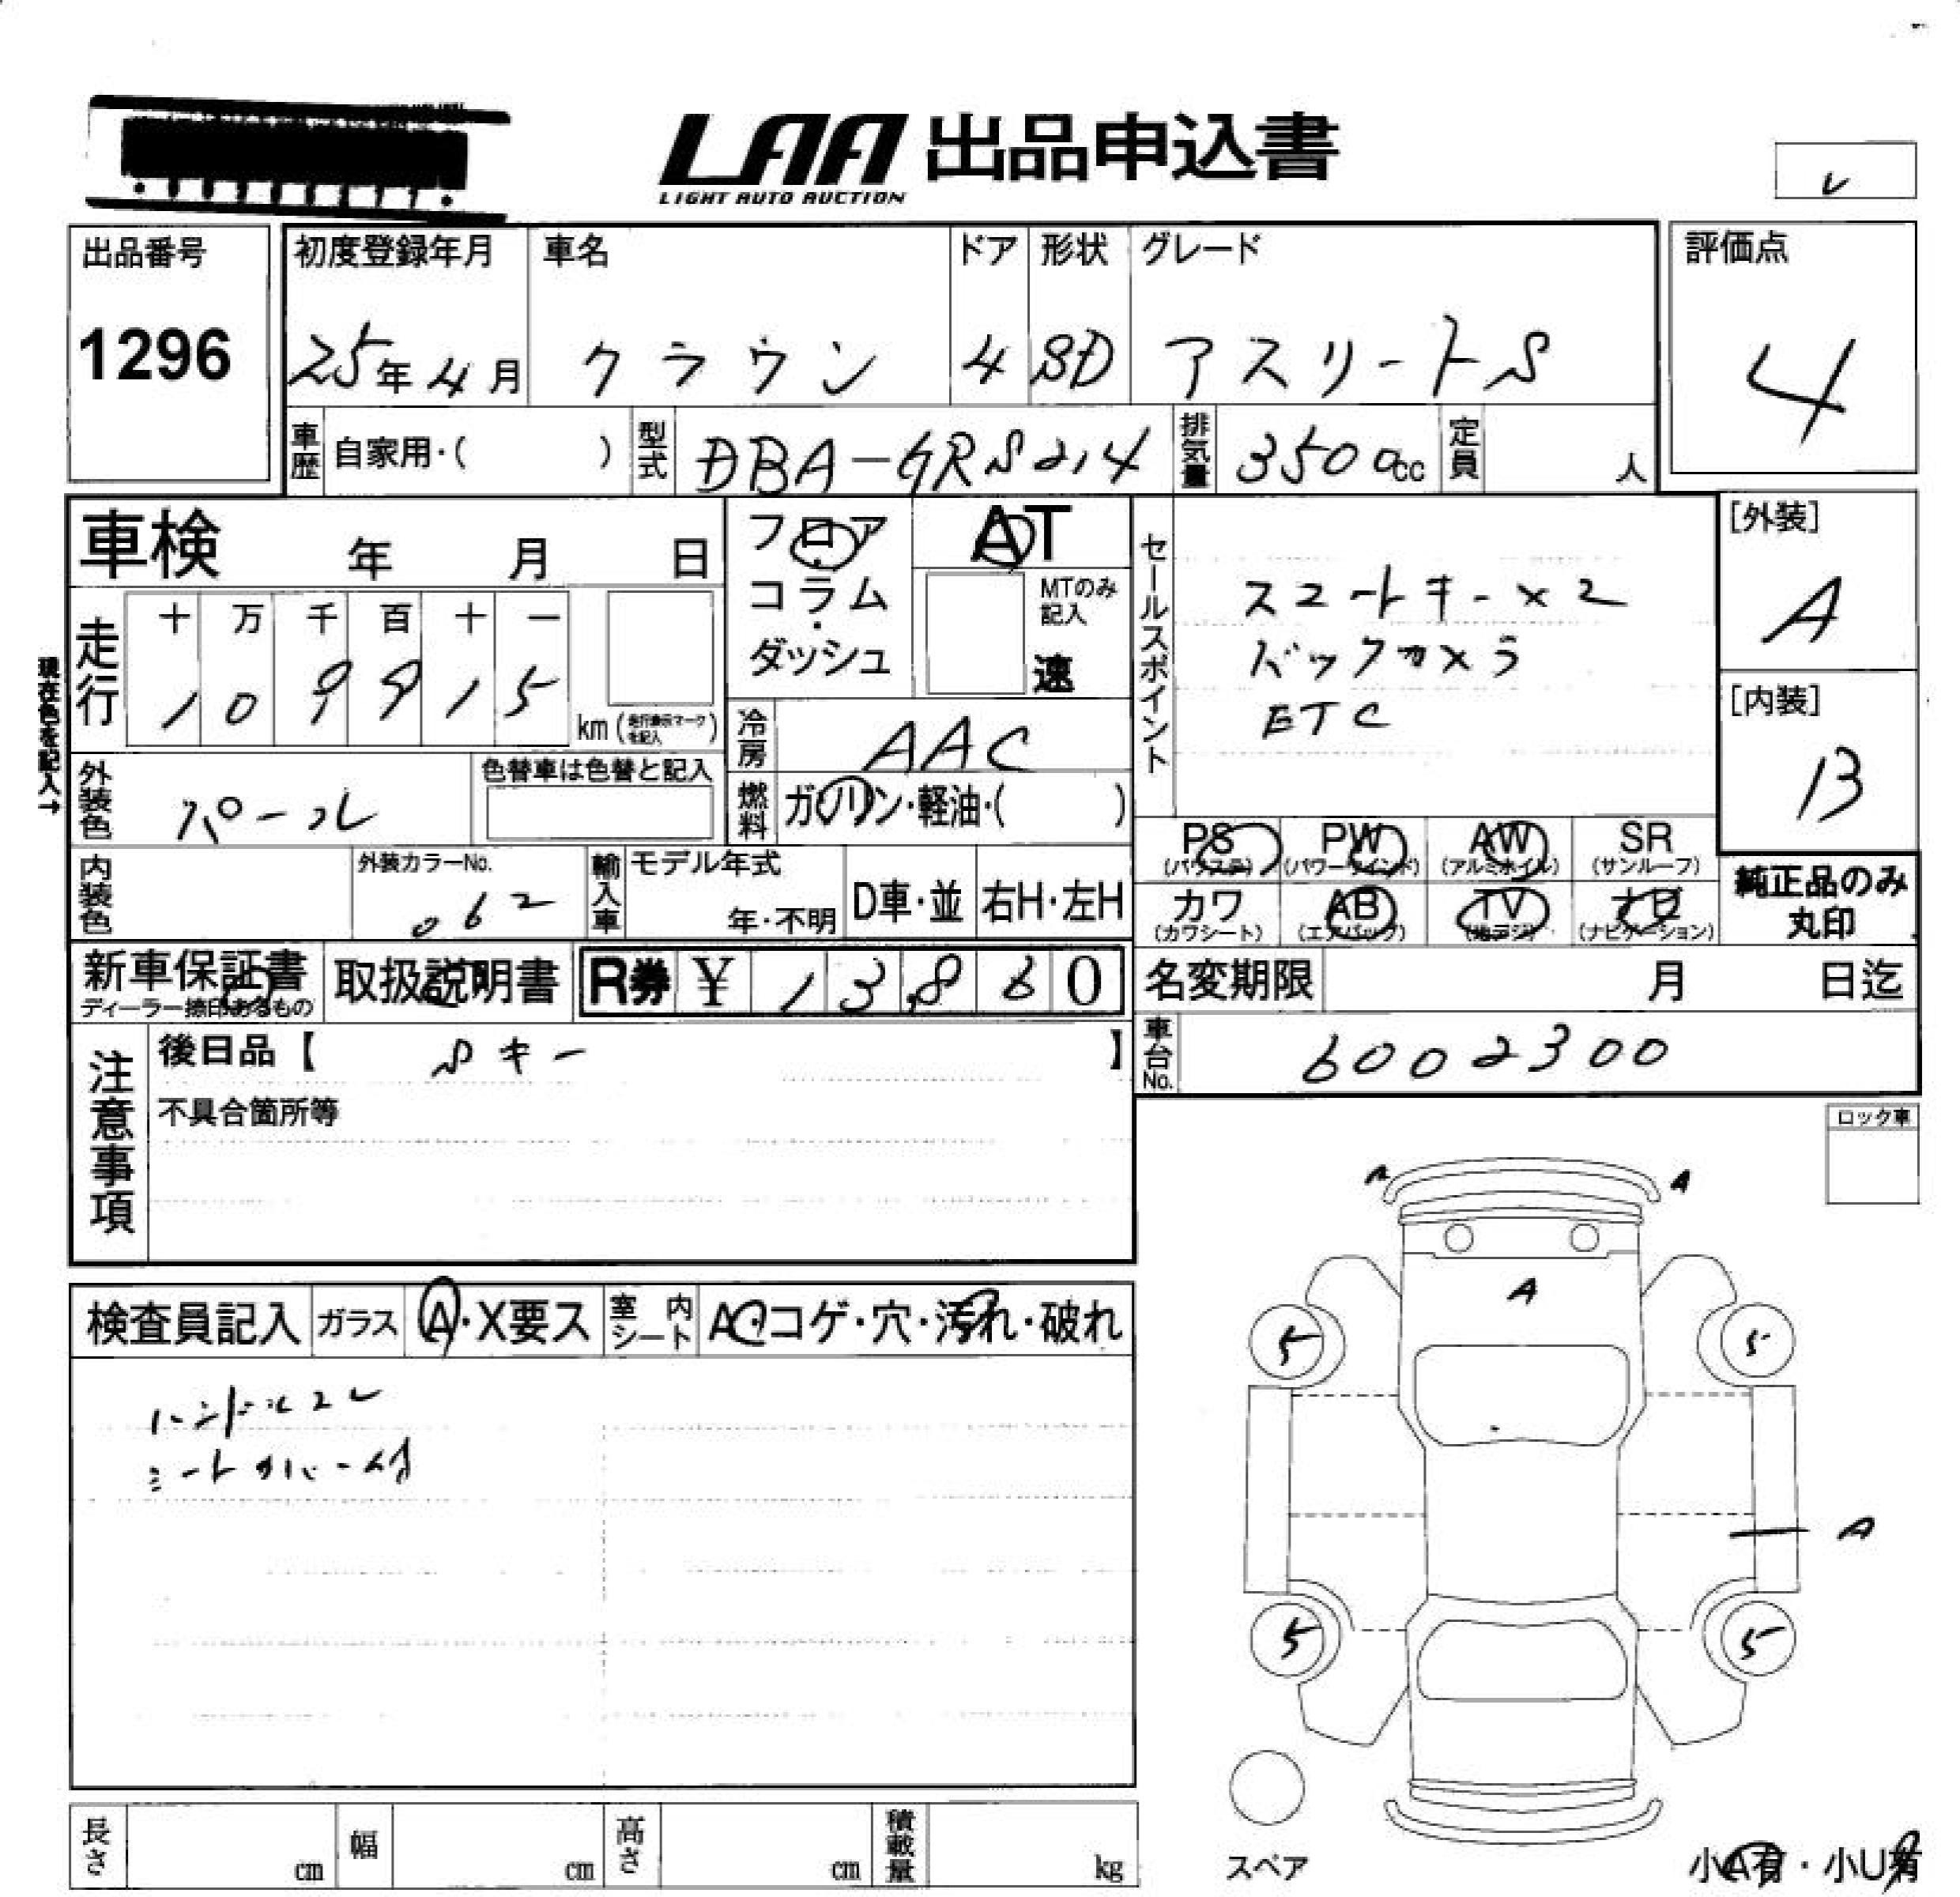 LAA 出品申込書
LIGHT AUTO AUCTION
レ
出品番号
1296
初度登録年月
25年4月
車名
クラウン
ドア
4
形状
SD
グレード
アスリートS
評価点
4
車歴 自家用・( )
型式 DBA-GRS214
排気量 3500cc
定員 人
車検 年 月 日
フロア・コラム・ダッシュ
AT
MTのみ記入
速
セールスポイント
スマートキー×2
バックカメラ
ETC
[外装]
A
[内装]
B
現在色を記入→
走行
十 万 千 百 十 一
1 0 9 9 1 5
km (走行表示マークを記入)
冷房 AAC
外装色 パール
色替車は色替と記入
燃料 ガソリン・軽油・( )
PS (パワステ)
PW (パワーウインド)
AW (アルミホイル)
SR (サンルーフ)
カワ (カワシート)
AB (エアバック)
TV (地デジ)
ナビ (ナビゲーション)
純正品のみ丸印
内装色
外装カラーNo.
062
輸入車
モデル年式
年・不明
D車・並
右H・左H
新車保証書
ディーラー捺印あるもの
取扱説明書
R券 ¥ 13,860
名変期限 月 日迄
車台No. 6002300
注意事項
後日品【 Sキー 】
不具合箇所等
ロック車
検査員記入
ガラス
A・X要ス
室内シート
A・コゲ・穴・汚れ・破れ
ハンドルスレ
シートカバー付
A
A
A
5
5
A
5
5
スペア
小A有・小U有
長さ cm
幅 cm
高さ cm
積載量 kg